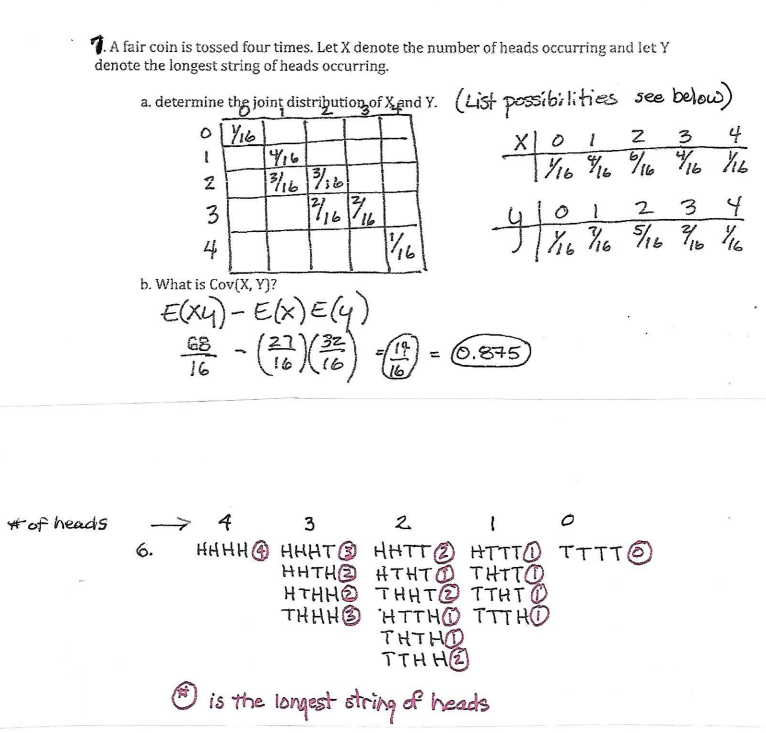 7. A fair coin is tossed four times. Let X denote the number of heads occurring and let Y
denote the longest string of heads occurring.
a. determine the joint distribution of X and Y. (List possibilities see below)
0 1 2 3 4
0 1/16
1 4/16
2 3/16 3/16
3 2/16 2/16
4 1/16
X 0 1 2 3 4
1/16 4/16 6/16 4/16 1/16
y 0 1 2 3 4
1/16 7/16 5/16 2/16 1/16
b. What is Cov(X, Y)?
E(XY) - E(X)E(Y)
68/16 - (27/16)(32/16) = 14/16 = 0.875
# of heads → 4 3 2 1 0
6. HHHH④ HHHT③ HHTT② HTTT① TTTT⓪
HHTH② HTHT① THTT①
HTHH② THHT② TTHT①
THHH③ HTTH① TTTH①
THTH①
TTHH②
(#) is the longest string of heads